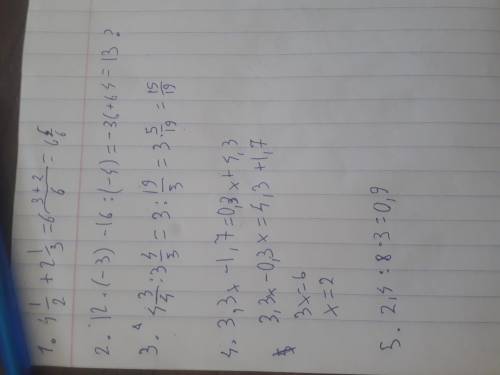 1. 4 1/2 + 2 1/3 = 6 3+2/6 = 6 5/6
2. 12·(-3) -16:(-4) = -36+64=13?
3. 4 3/4 : 3 4/5 = 3 : 19/5 = 3· 5/19 = 15/19
4. 3,3x -1,7=0,3x+4,3
3,3x-0,3x=4,3+1,7
3x=6
x=2
5. 2,4:8·3=0,9